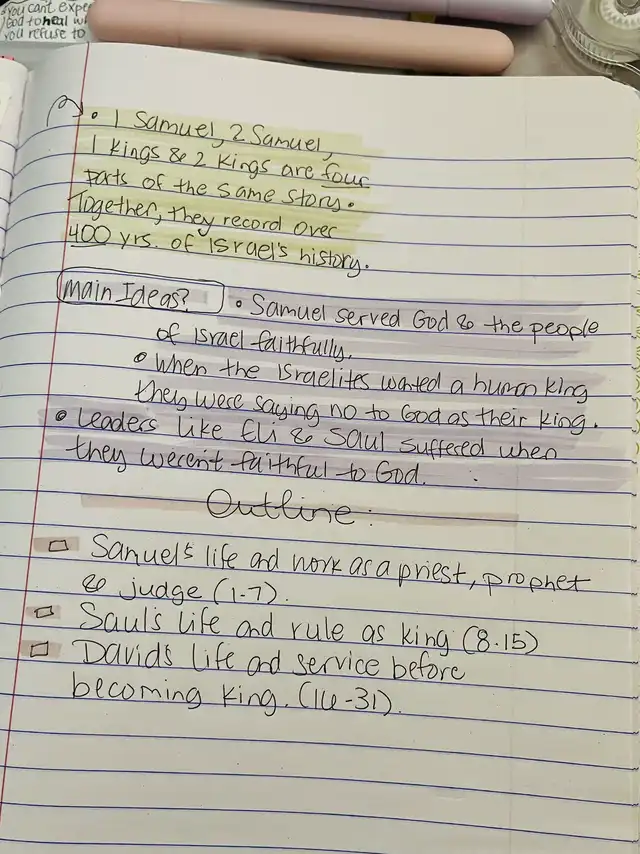 you can't expe
God to heal w
you refuse to
• 1 Samuel, 2 Samuel,
1 Kings & 2 Kings are four
parts of the same story.
Together, they record over
400 yrs. of Israel's history.
Main Ideas? • Samuel served God & the people
of Israel faithfully.
• When the Israelites wanted a human king
they were saying no to God as their king.
• Leaders like Eli & Saul suffered when
they weren't faithful to God.
Outline:
Samuel's life and work as a priest, prophet
& judge (1-7).
Saul's life and rule as king (8-15)
David's life and service before
becoming king. (16-31).